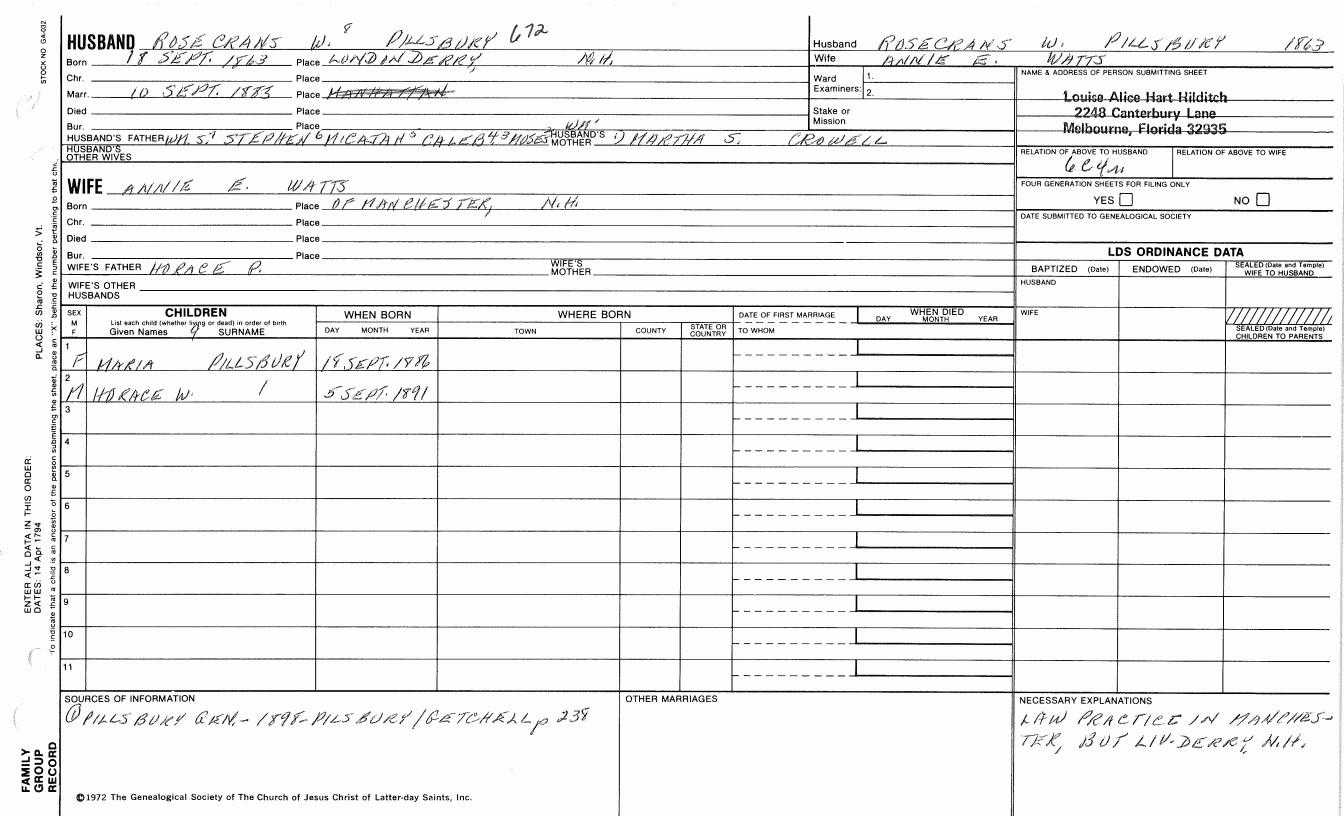 STOCK NO. GA-032
HUSBAND ROSECRANS W. 8 PILLSBURY 672
Born 18 SEPT. 1863 Place LONDONDERRY, N.H.
Chr. Place
Marr. 10 SEPT. 1883 Place MANHATTAN
Died Place
Bur. Place
HUSBAND'S FATHER WM. S.7 STEPHEN6 MICAJAH5 CALEB4 3 MOSES2 WM1 HUSBAND'S MOTHER 1) MARTHA S. CROWELL
HUSBAND'S OTHER WIVES
WIFE ANNIE E. WATTS
Born Place OF MANCHESTER, N.H.
Chr. Place
Died Place
Bur. Place
WIFE'S FATHER HORACE P. WIFE'S MOTHER
WIFE'S OTHER HUSBANDS
Husband ROSECRANS W. PILLSBURY 1863
Wife ANNIE E. WATTS
Ward Examiners: 1.
2.
Stake or Mission
NAME & ADDRESS OF PERSON SUBMITTING SHEET
Louise Alice Hart Hilditch
2248 Canterbury Lane
Melbourne, Florida 32935
RELATION OF ABOVE TO HUSBAND RELATION OF ABOVE TO WIFE
6C4R
FOUR GENERATION SHEETS FOR FILING ONLY
YES NO
DATE SUBMITTED TO GENEALOGICAL SOCIETY
LDS ORDINANCE DATA
BAPTIZED (Date) ENDOWED (Date) SEALED (Date and Temple) WIFE TO HUSBAND
HUSBAND
WIFE
SEALED (Date and Temple) CHILDREN TO PARENTS
SEX M F
CHILDREN
List each child (whether living or dead) in order of birth
Given Names 9 SURNAME
WHEN BORN
DAY MONTH YEAR
WHERE BORN
TOWN COUNTY STATE OR COUNTRY
DATE OF FIRST MARRIAGE
TO WHOM
WHEN DIED
DAY MONTH YEAR
1
F MARIA PILLSBURY 18 SEPT. 1886
2
M HORACE W. 5 SEPT. 1891
3
4
5
6
7
8
9
10
11
SOURCES OF INFORMATION
① PILLSBURY GEN.- 1898-PILSBURY/GETCHELL p 238
OTHER MARRIAGES
NECESSARY EXPLANATIONS
LAW PRACTICE IN MANCHES-
TER, BUT LIV-DERRY, N.H.
©1972 The Genealogical Society of The Church of Jesus Christ of Latter-day Saints, Inc.
ENTER ALL DATA IN THIS ORDER:
DATES: 14 Apr 1794
PLACES: Sharon, Windsor, Vt.
To indicate that a child is an ancestor of the person submitting the sheet, place an "X" behind the number pertaining to that chi
FAMILY
GROUP
RECORD